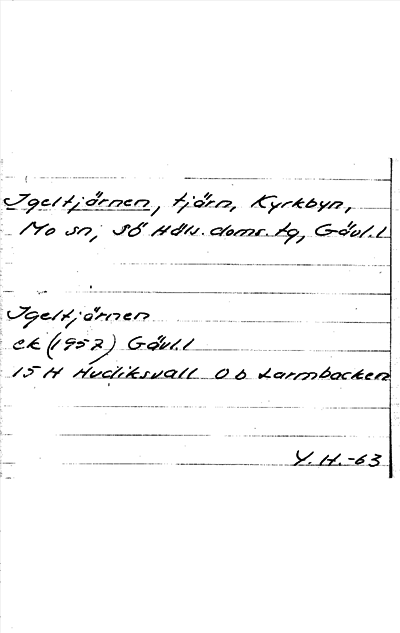 Igeltjärnen, tjärn, Kyrkbyn,
Mo sn, Sö Häls. doms. tg, Gävl.l
Igeltjärnen
ek (1957) Gävl.l
15 H Hudiksvall 0 b Larmbacken
Y. H. -63